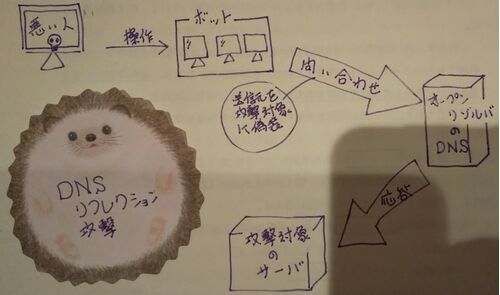 悪い人
操作
ボット
送信元を
攻撃対象
に偽装
問い合わせ
オープン
リゾルバ
の
DNS
応答
攻撃対象
の
サーバ
DNS
リフレクション
攻撃